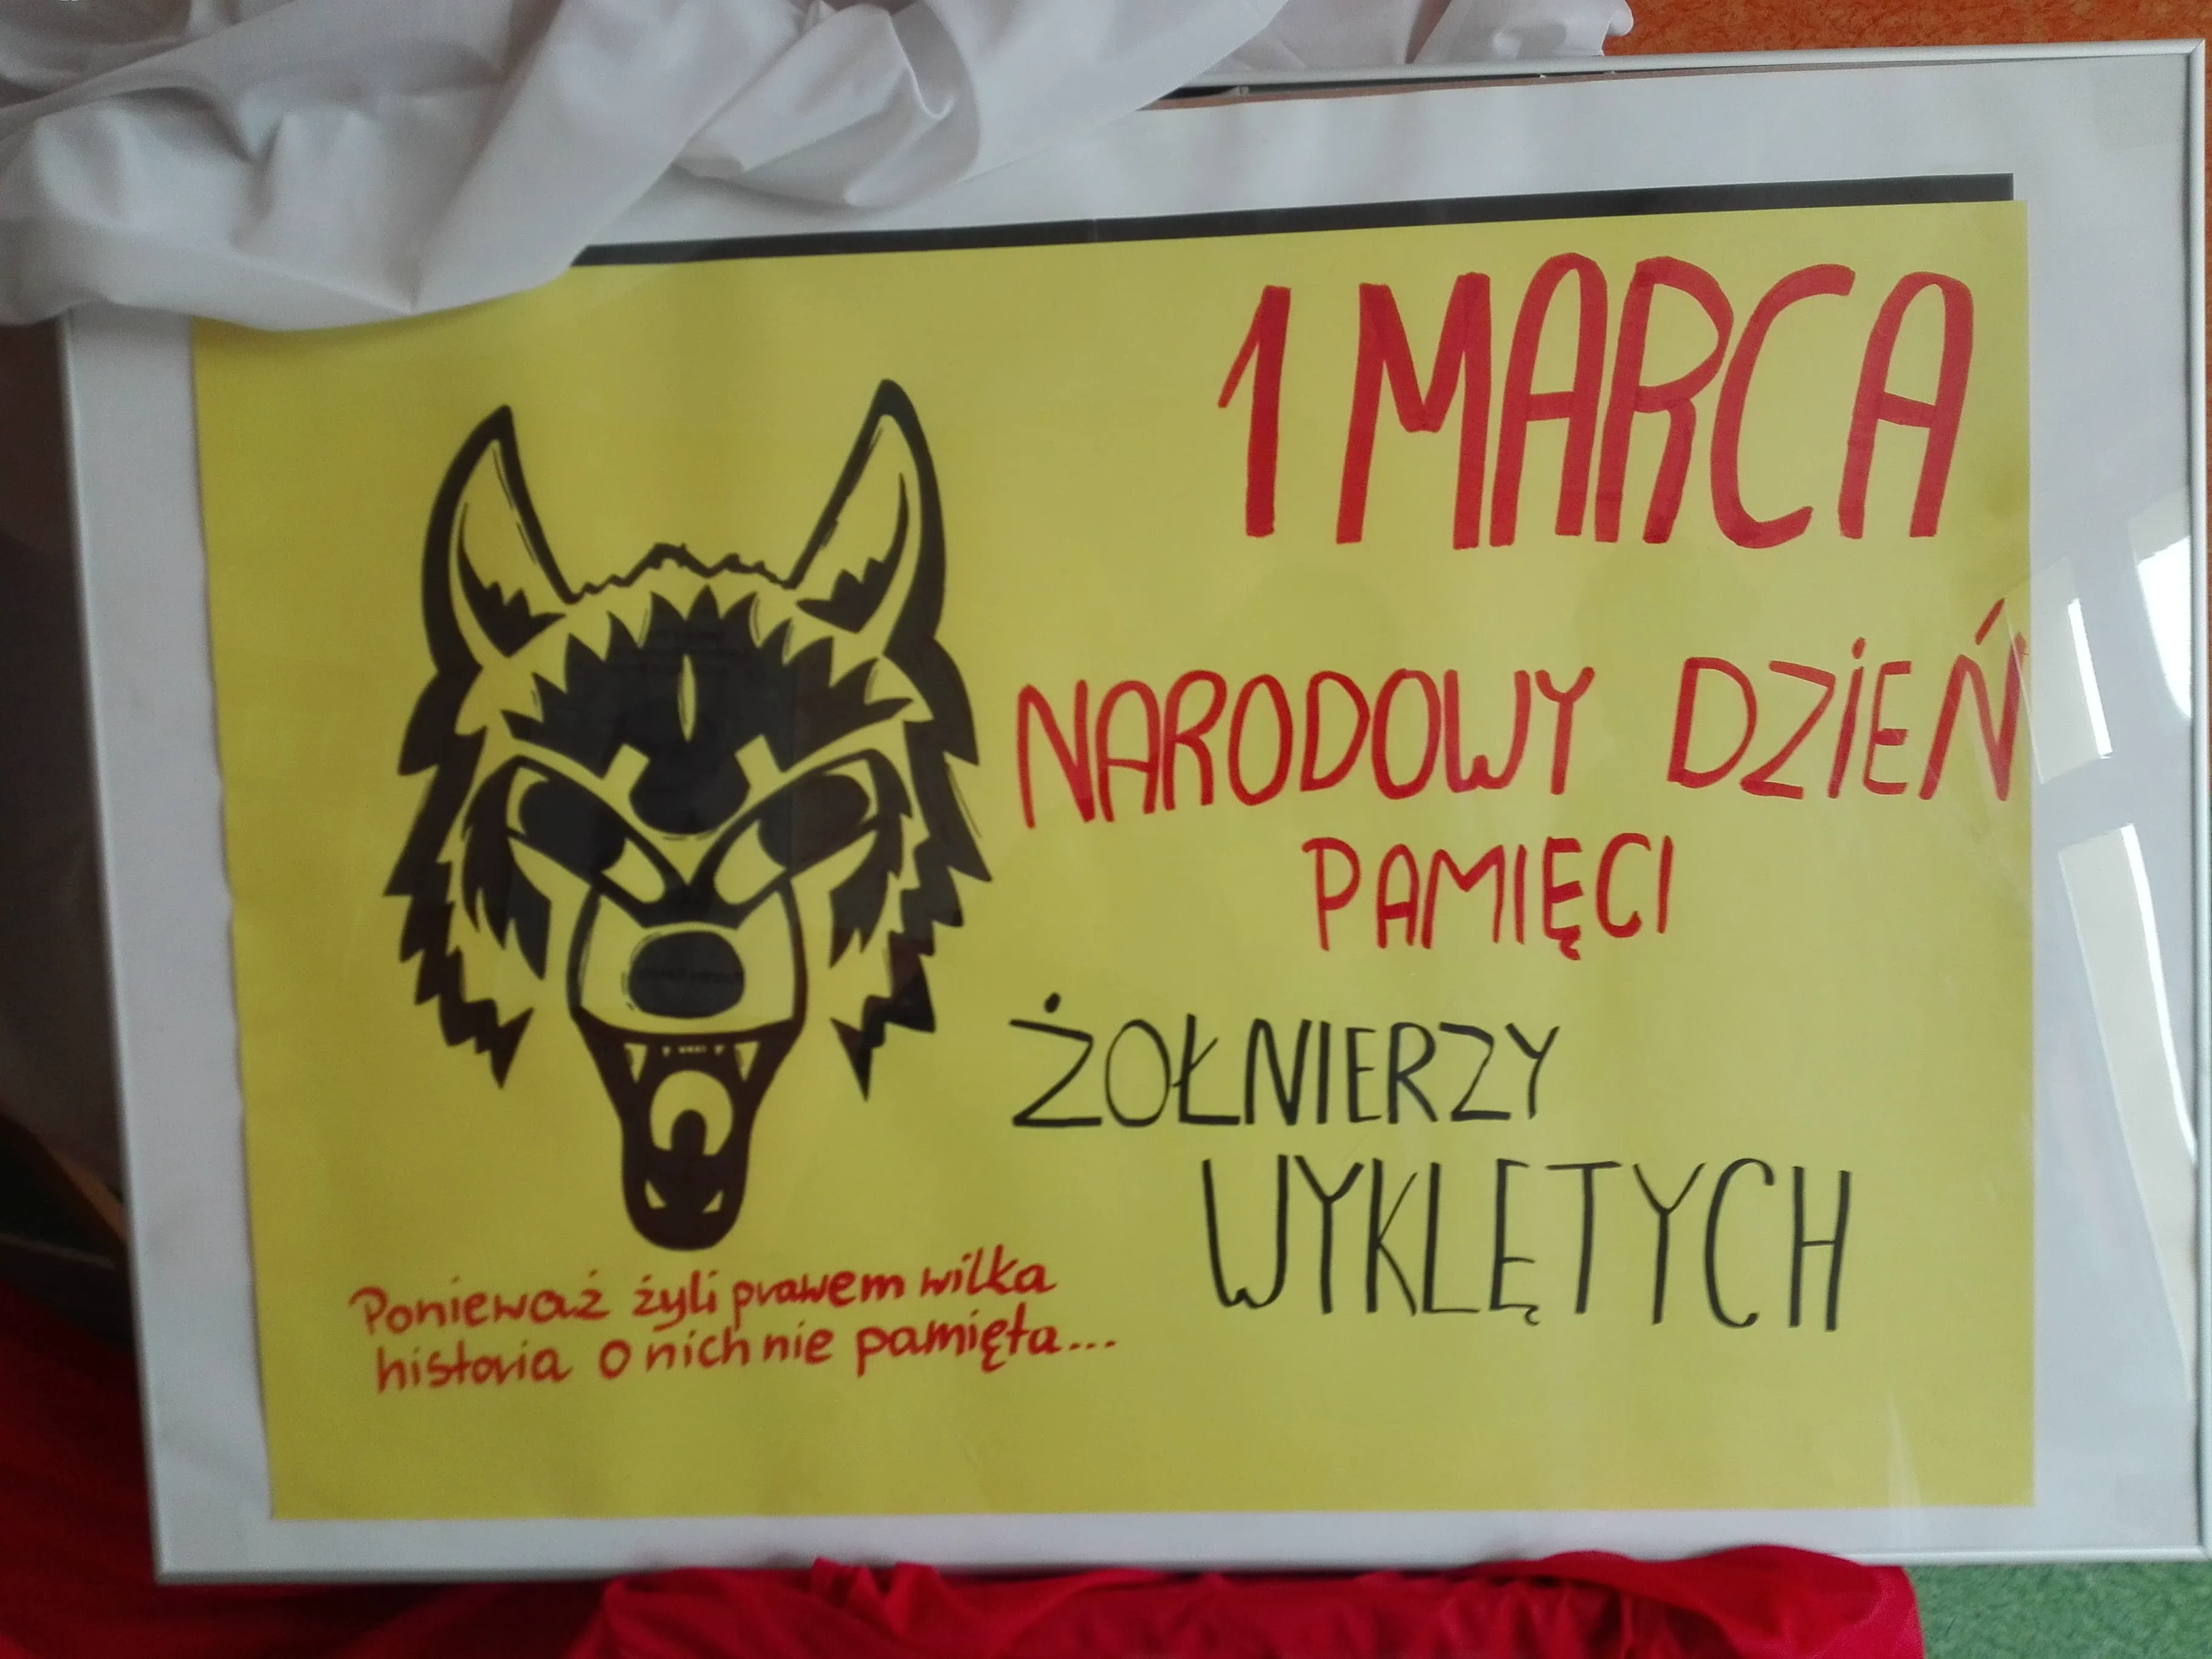 1 MARCA
NARODOWY DZIEŃ
PAMIĘCI
ŻOŁNIERZY
WYKLĘTYCH
Ponieważ żyli prawem wilka
historia o nich nie pamięta...